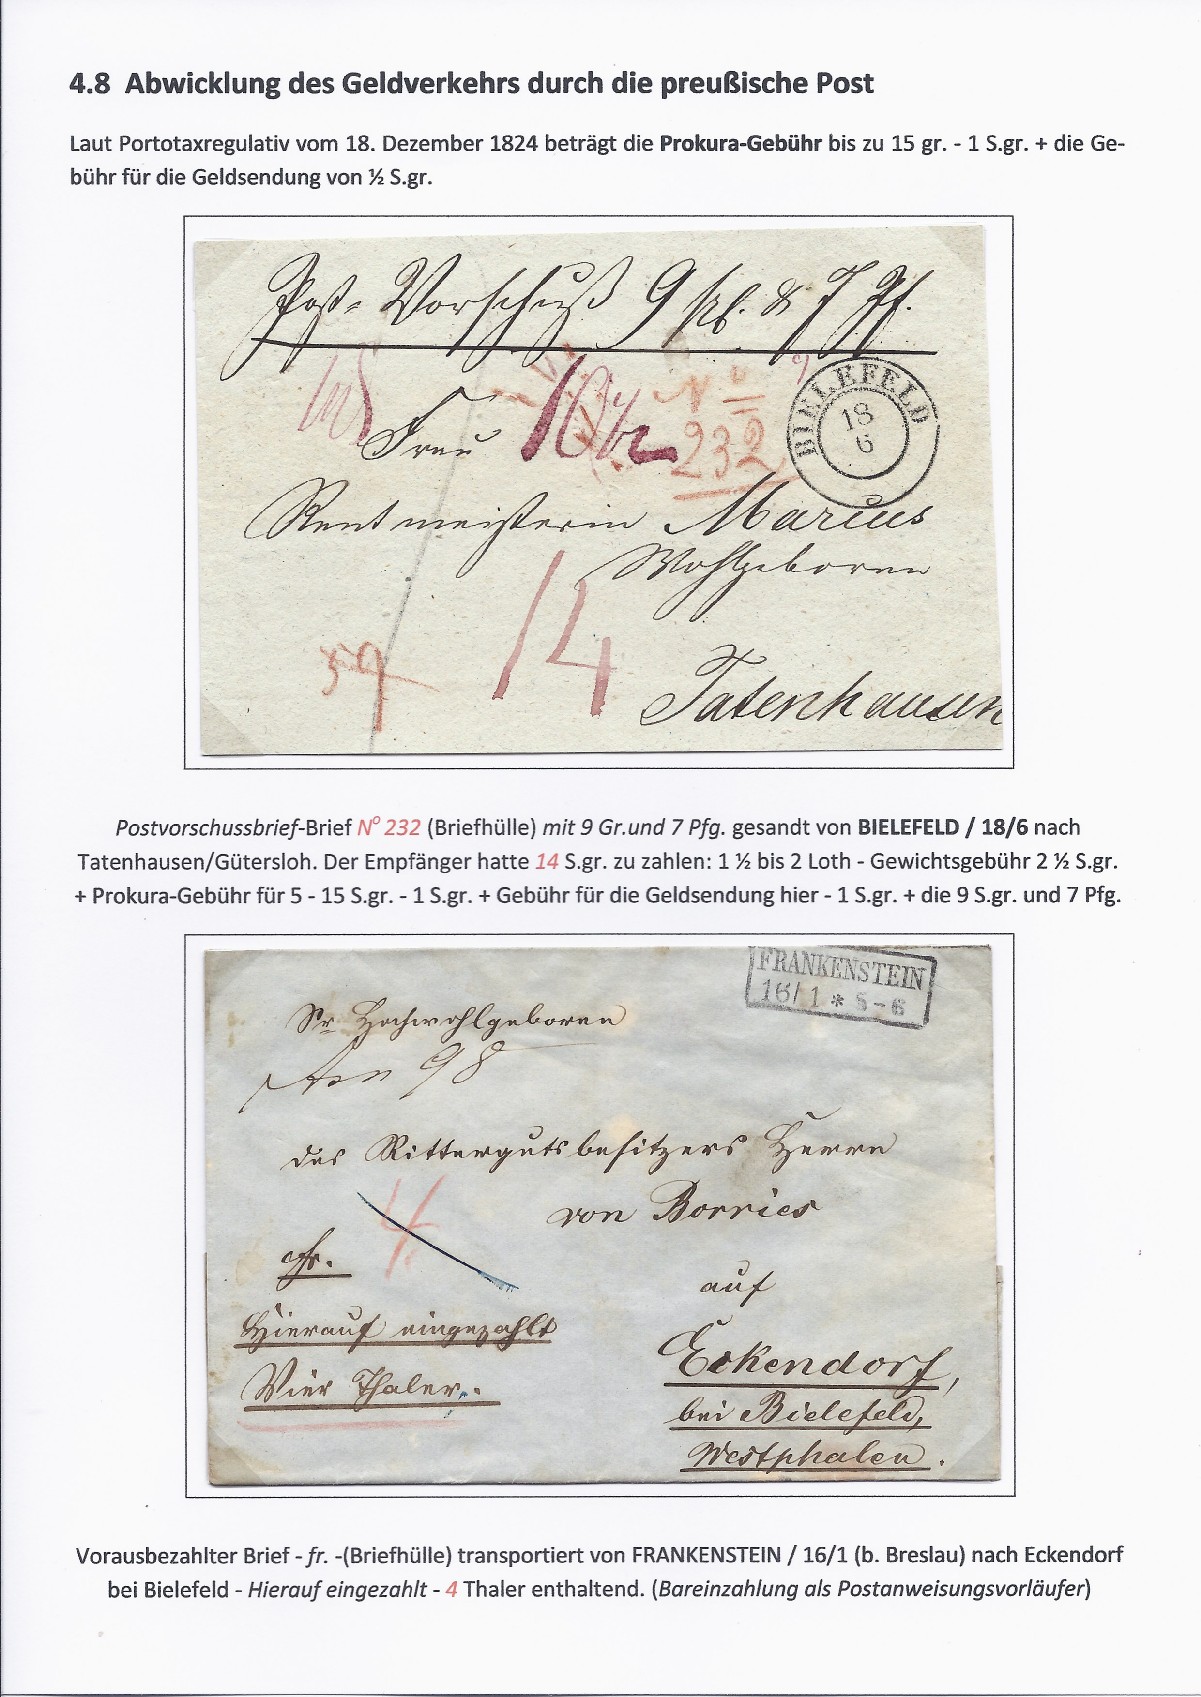 4.8 Abwicklung des Geldverkehrs durch die preußische Post
Laut Portotaxregulativ vom 18. Dezember 1824 beträgt die Prokura-Gebühr bis zu 15 gr. - 1 S.gr. + die Ge-
bühr für die Geldsendung von ½ S.gr.
Post-Vorschuß 9 & 7 Pf.
BIELEFELD
18
6
Frau 10½ No 232
Rentmeisterin Marcus
Wohlgeboren
14
Tatenhausen
Postvorschussbrief-Brief No 232 (Briefhülle) mit 9 Gr.und 7 Pfg. gesandt von BIELEFELD / 18/6 nach
Tatenhausen/Gütersloh. Der Empfänger hatte 14 S.gr. zu zahlen: 1 ½ bis 2 Loth - Gewichtsgebühr 2 ½ S.gr.
+ Prokura-Gebühr für 5 - 15 S.gr. - 1 S.gr. + Gebühr für die Geldsendung hier - 1 S.gr. + die 9 S.gr. und 7 Pfg.
FRANKENSTEIN
16/1 * 5-6
Sr. Hochwohlgeboren
98
des Rittergutsbesitzers Herrn
von Borries
4
fr.
auf
Hierauf eingezahlt
Vier Thaler.
Eckendorf,
bei Bielefeld,
Westphalen.
Vorausbezahlter Brief - fr. -(Briefhülle) transportiert von FRANKENSTEIN / 16/1 (b. Breslau) nach Eckendorf
bei Bielefeld - Hierauf eingezahlt - 4 Thaler enthaltend. (Bareinzahlung als Postanweisungsvorläufer)